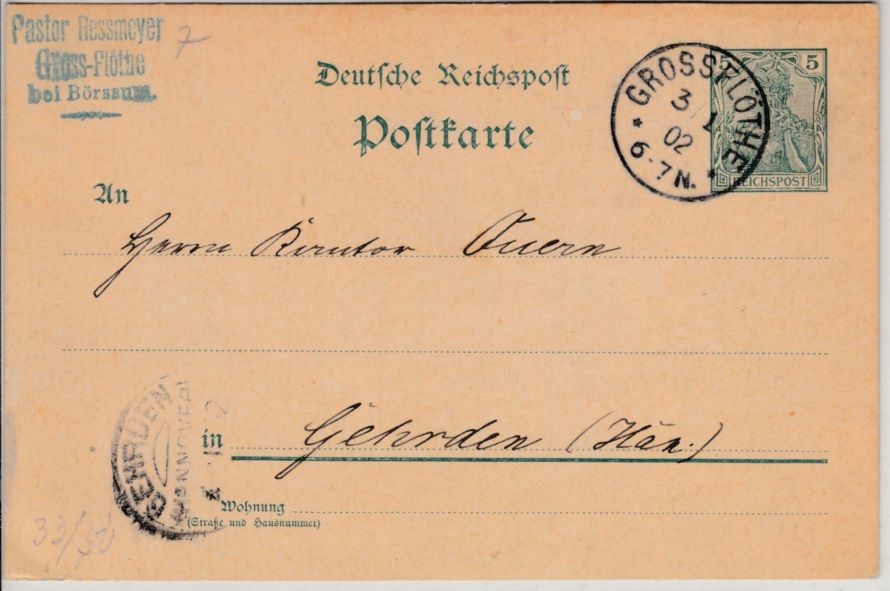 Pastor Ressmeyer
Gross-Flöthe
bei Börssum.
7
Deutsche Reichspost
Postkarte
5 5
REICHSPOST
GROSSFLÖTHE
3/1
02
6-7N.
An
Herrn Kantor
in Gehrden (Han.)
GEHRDEN
HANNOVER
Wohnung
(Straße und Hausnummer)
33/50